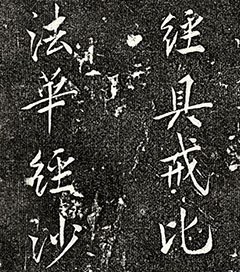 經具戒比
法華經沙